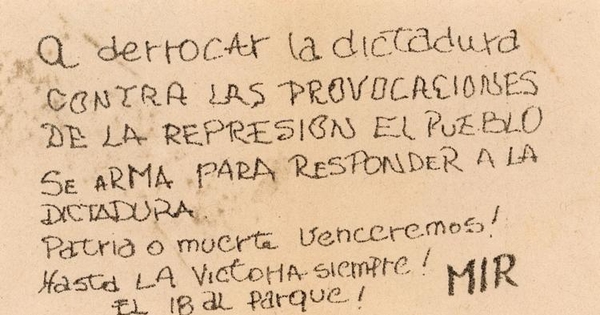 a derrocar la dictadura
CONTRA LAS PROVOCACIONES
DE LA REPRESION EL PUEBLO
SE ARMA PARA RESPONDER A LA
DICTADURA.
Patria o muerte Venceremos!
Hasta LA VICTORIA siempre!
MIR
EL 18 al Parque!